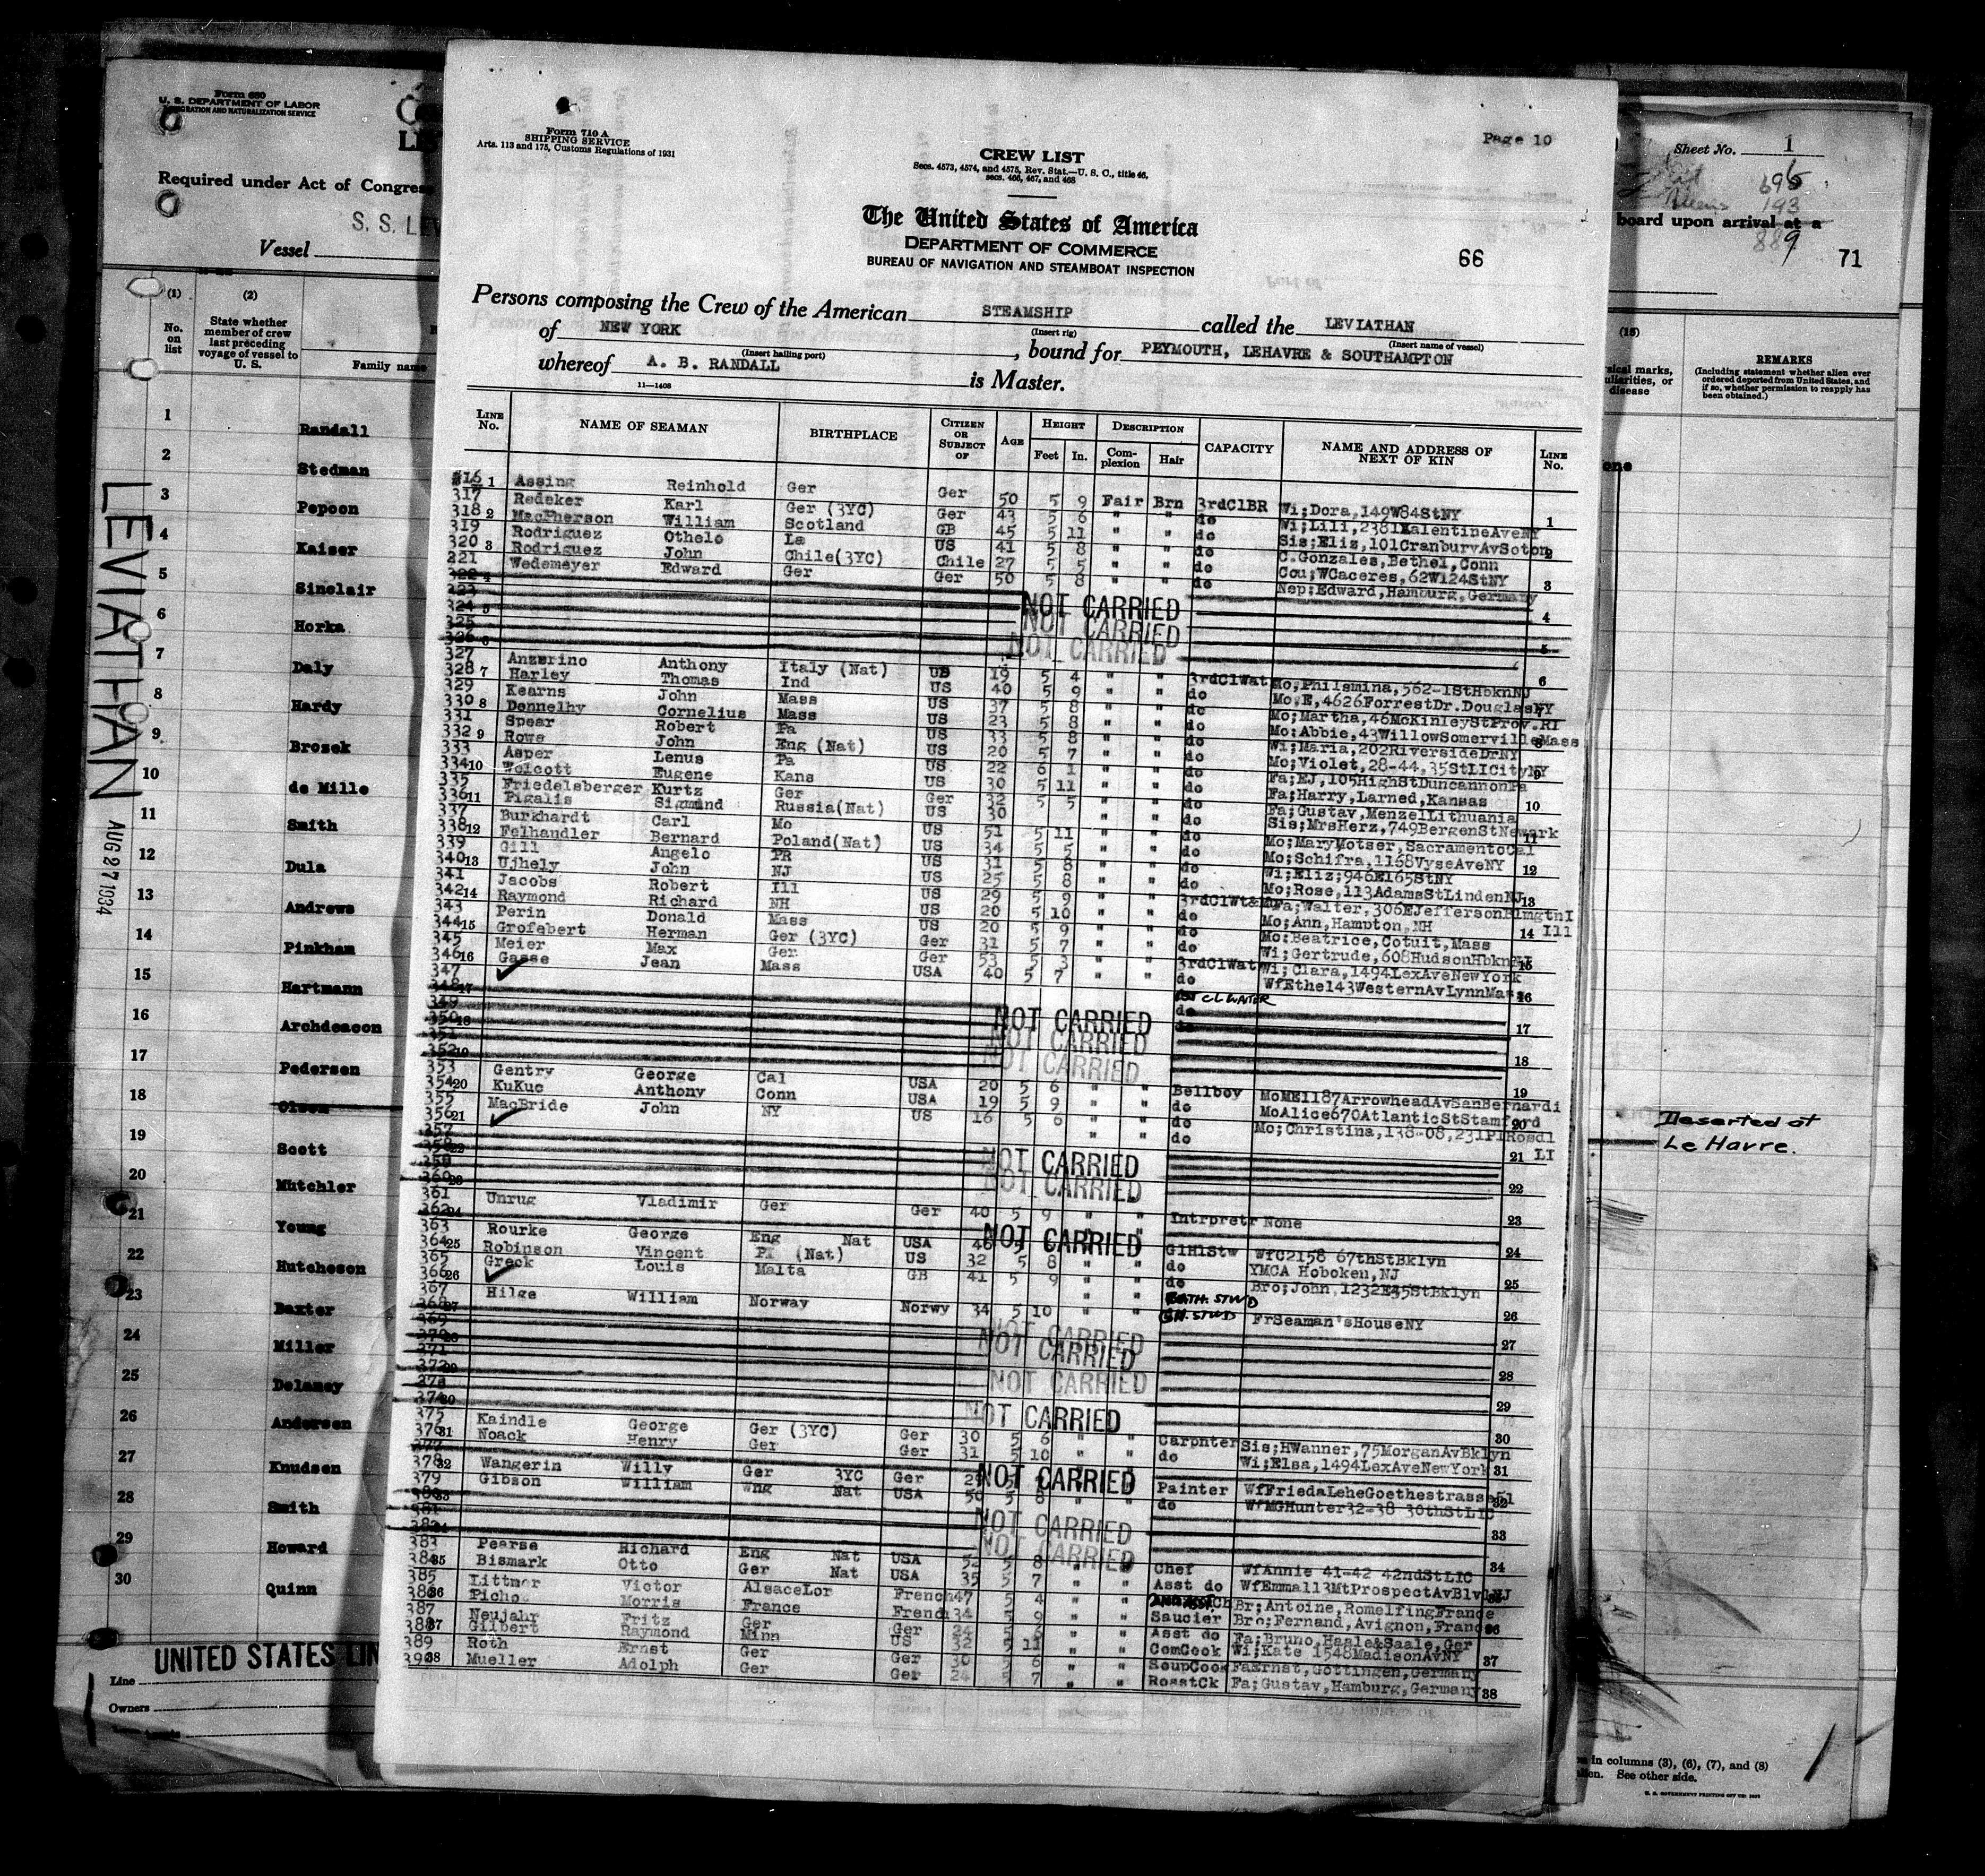 Form 680
U. S. DEPARTMENT OF LABOR
IMMIGRATION AND NATURALIZATION SERVICE
Required under Act of Congress
S. S. LEV
Vessel
(1) (2)
No. on list
State whether member of crew last preceding voyage of vessel to U. S.
Family name
1 Randall
2 Stedman
3 Pepoon
4 Kaiser
5 Sinclair
6 Horka
7 Daly
8 Hardy
9 Brosek
10 de Mille
11 Smith
12 Dula
13 Andrews
14 Pinkham
15 Hartmann
16 Archdeacon
17 Pedersen
18 Olsen
19 Scott
20 Mutchler
21 Young
22 Hutcheson
23 Baxter
24 Miller
25 Delaney
26 Andersen
27 Knudsen
28 Smith
29 Howard
30 Quinn
LEVIATHAN AUG 27 1934
UNITED STATES LIN
Line
Owners
Form 710 A
SHIPPING SERVICE
Arts. 113 and 175, Customs Regulations of 1931
Page 10
CREW LIST
Secs. 4573, 4574, and 4575, Rev. Stat.—U. S. C., title 46,
secs. 466, 467, and 468
The United States of America
DEPARTMENT OF COMMERCE
BUREAU OF NAVIGATION AND STEAMBOAT INSPECTION
66
Persons composing the Crew of the American STEAMSHIP called the LEVIATHAN
(Insert rig) (Insert name of vessel)
of NEW YORK, bound for PEYMOUTH, LEHAVRE & SOUTHAMPTON
(Insert hailing port)
whereof A. B. RANDALL is Master.
11—1408
LINE No. NAME OF SEAMAN BIRTHPLACE CITIZEN OR SUBJECT OF AGE HEIGHT Feet In. DESCRIPTION Complexion Hair CAPACITY NAME AND ADDRESS OF NEXT OF KIN LINE No.
316 1 Assing Reinhold Ger Ger 50 5 9 Fair Brn 3rdClBR Wi;Dora,149W84StNY 1
317 Redeker Karl Ger (3YC) Ger 43 5 6 " " do Wi;Lili,2381ValentineAveNY
318 2 MacPherson William Scotland GB 45 5 11 " " do Sis;Eliz,101CranburyAvSoton 2
319 Rodriguez Othelo La US 41 5 8 " " do C.Gonzales,Bethel,Conn
320 3 Rodriguez John Chile(3YC) Chile 27 5 5 " " do Cou;WCaceres,62W124StNY 3
221 Wedemeyer Edward Ger Ger 50 5 8 " " do Nep;Edward,Hamburg,Germany
322 4 NOT CARRIED 4
323
324 5 NOT CARRIED 5
325
326 6 NOT CARRIED 6
327 Anzerino Anthony Italy (Nat) US 19 5 4 " " 3rdClWat Mo;Philsmina,562-1StHbknNJ
328 7 Harley Thomas Ind US 40 5 9 " " do Mo;E,4626ForrestDr.DouglasNY 7
329 Kearns John Mass US 37 5 8 " " do Mo;Martha,46McKinleyStProv.RI
330 8 Donnelhy Cornelius Mass US 23 5 8 " " do Mo:Abbie,43WillowSomervilleMass 8
331 Spear Robert Pa US 33 5 8 " " do Wi;Maria,202RiversideDrNY
332 9 Rowe John Eng (Nat) US 20 5 7 " " do Mo;Violet,28-44,35StLICityNY 9
333 Asper Lenus Pa US 22 6 1 " " do Fa;EJ,105HighStDuncannonPa
334 10 Wolcott Eugene Kans US 30 5 11 " " do Fa;Harry,Larned,Kansas 10
335 Friedelsberger Kurtz Ger Ger 32 5 5 " " do Fa;Gustav,MenzelLithuania
336 11 Pigalis Sigmund Russia(Nat) US 30 " " do Sis;MrsHerz,749BergenStNewark 11
337 Burkhardt Carl Mo US 51 5 11 " " do Mo;MaryMotser,SacramentoCal
338 12 Felhandler Bernard Poland(Nat) US 34 5 5 " " do Mo;Schifra,1168VyseAveNY 12
339 Gill Angelo PR US 31 5 8 " " do Wi;Eliz;946E165StNY
340 13 Ujhely John NJ US 25 5 8 " " do Mo;Rose,113AdamsStLindenNJ 13
341 Jacobs Robert Ill US 29 5 9 " " Fa;Walter,306EJeffersonBlmgtnI
342 14 Raymond Richard NH US 20 5 10 " " do Mo;Ann,Hampton,NH 14 Ill
343 Perin Donald Mass US 20 5 9 " " do Mo:Beatrice,Cotuit,Mass
344 15 Grofebert Herman Ger (3YC) Ger 31 5 7 " " do Wi;Gertrude,608HudsonHbknNJ 15
345 Meier Max Ger Ger 53 5 3 " " 3rdClWat Wi;Clara,1494LexAveNewYork
346 16 Gasse Jean Mass USA 40 5 7 " " do WfEthel43WesternAvLynnMass 16
347 CL WAITER
348 17 do NOT CARRIED 17
349
350 18 NOT CARRIED 18
351
352 19 NOT CARRIED 19
353 Gentry George Cal USA 20 5 6 " " Bellboy MoME1187ArrowheadAvSanBernardi
354 20 KuKuc Anthony Conn USA 19 5 9 " " do MoAlice670AtlanticStStamford 20
355 MacBride John NY US 16 5 6 " " do Mo;Christina,138-08,231PlRosdl
356 21 21 LI
357
358 22 NOT CARRIED 22
359
360 23 NOT CARRIED 23
361 Unrug Vladimir Ger Ger 40 5 9 " " Intrpretr None
362 24 NOT CARRIED 24
363 Rourke George Eng Nat USA 46 5 GlHlStw WfC2158 67thStBklyn
364 25 Robinson Vincent PI (Nat) US 32 5 8 " " do YMCA Hoboken,NJ 25
365 Greck Louis Malta GB 41 5 9 " " do Bro;John,1232E35StBklyn
366 26 BATH. STWD 26
367 Hilge William Norway Norwy 34 5 10 " " GH. STWD FrSeaman'sHouseNY
368 27 NOT CARRIED 27
369
370 28 NOT CARRIED 28
371
372 29 NOT CARRIED 29
373
374 30 NOT CARRIED 30
375 Kaindle George Ger (3YC) Ger 30 5 6 " " Carpnter Sis;HWanner,75MorganAvBklyn
376 31 Noack Henry Ger Ger 31 5 10 " " do Wi;Elsa,1494LexAveNewYork 31
377 NOT CARRIED
378 32 Wangerin Willy Ger 3YC Ger 29 Painter WfFriedaLeheGoethestrasse51 32
379 Gibson William wng Nat USA 50 5 8 " " do WfMGHunter32-38 30thStLIC
380 33 NOT CARRIED 33
381
382 34 NOT CARRIED 34
383 Pearse Richard Eng Nat USA 52 5 8 " " Chef WfAnnie 41-42 42ndStLIC
384 35 Bismark Otto Ger Nat USA 35 5 7 " " Asst do WfEmma113MtProspectAvBlvlNJ 35
385 Littner Victor AlsaceLor French 47 5 4 " " Br;Antoine,RomelfingFrance
386 36 Picho Morris France French 34 5 9 " " Saucier Bro;Fernand,Avignon,France 36
387 Neujahr Fritz Ger Ger 24 5 6 " " Asst do Fa;Bruno,Hasle&Saale,Ger
388 37 Gilbert Raymond Minn US 32 5 11 " " ComCook Wi;Kate 1548MadisonAvNY 37
389 Roth Ernst Ger Ger 30 5 6 " " SoupCook FaErnst,Gottingen,Germany
390 38 Mueller Adolph Ger Ger 24 5 7 " " RoastCk Fa;Gustav,Hamburg,Germany 38
Sheet No. 1
696
193
889
board upon arrival at a
71
(15)
REMARKS
(Including statement whether alien ever ordered deported from United States, and if so, whether permission to reapply has been obtained.)
sical marks,
uliarities, or
disease
one
Deserted at
Le Havre.
in columns (3), (6), (7), and (8)
See other side.